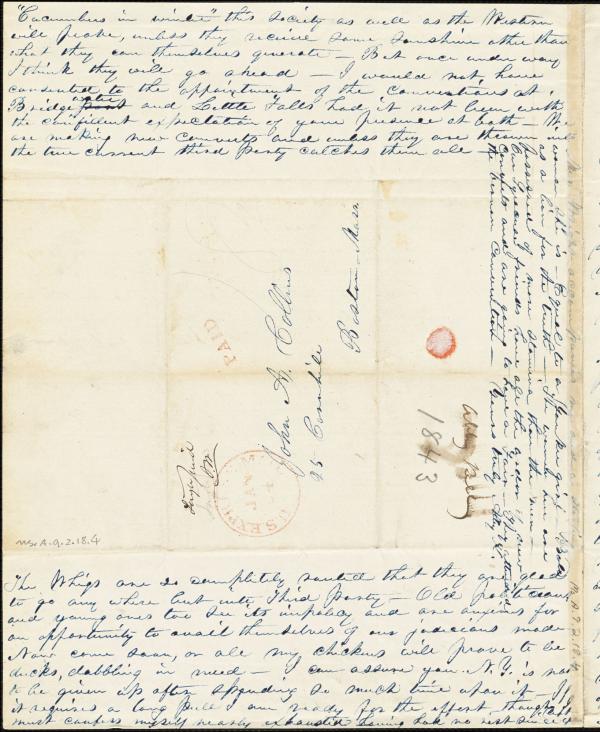 "Cucumbers in winter" this society as well as the Western
will prove, unless they receive some sunshine other than
what they can themselves generate – But once under way
I think they will go ahead – I would not have
consented to the appointment of the Conventions at
Bridgewater and Little Falls had it not been with
the confident expectation of your presence at both – We
are making new converts and unless they are thrown into
the true current third party catches them all –
woman she is – Equal to a Quaker girl – Bold
as a lion for the truth – The women here are
possessed of more stamina than the men –
Our friends here are
and are going to have a Fair
the Convention – Yours truly
PAID
John A. Collins
25 Cornhill
Boston Mass
JAN
4
U.S. EXP
Abby Kelley
1843
Ms. A. 9. 2. 18. 4
The Whigs are so completely routed that they are glad
to go any where but into Third party – Old politicians
and young ones too see its impolicy and are anxious for
an opportunity to avail themselves of our judicious mode
Now come soon, or all my chickens will prove to be
ducks, dabbling in mud – I can assure you N.Y. is not
to be given up after spending so much time upon it – If
it requires a long pull I am ready for the effort, though I
must confess myself nearly exhausted having had no rest since